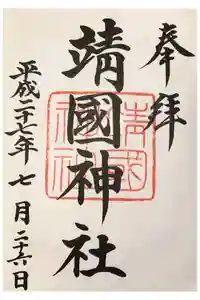 奉拝
靖國神社
平成二十七年七月二十六日
靖國神社